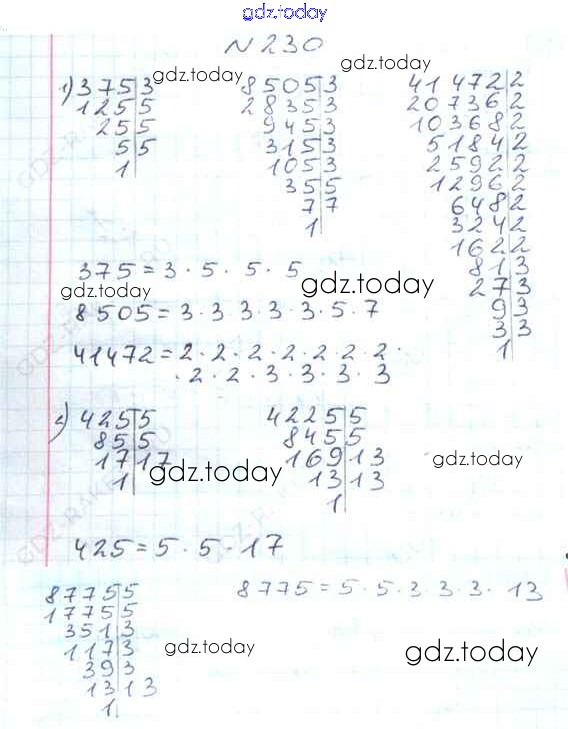 gdz.today
N 230
gdz.today
gdz.today
1) 375|3
125|5
25|5
5|5
1|
8505|3
2835|3
945|3
315|3
105|3
35|5
7|7
1|
41472|2
20736|2
10368|2
5184|2
2592|2
1296|2
648|2
324|2
162|2
81|3
27|3
9|3
3|3
1|
375 = 3 · 5 · 5 · 5
gdz.today
gdz.today
8505 = 3 · 3 · 3 · 3 · 3 · 5 · 7
41472 = 2 · 2 · 2 · 2 · 2 · 2 · 2 ·
· 2 · 2 · 3 · 3 · 3 · 3
2) 425|5
85|5
17|17
1|
4225|5
845|5
169|13
13|13
1|
gdz.today
gdz.today
425 = 5 · 5 · 17
8775|5
1775|5
351|3
117|3
39|3
13|13
1|
8775 = 5 · 5 · 3 · 3 · 3 · 13
gdz.today
gdz.today